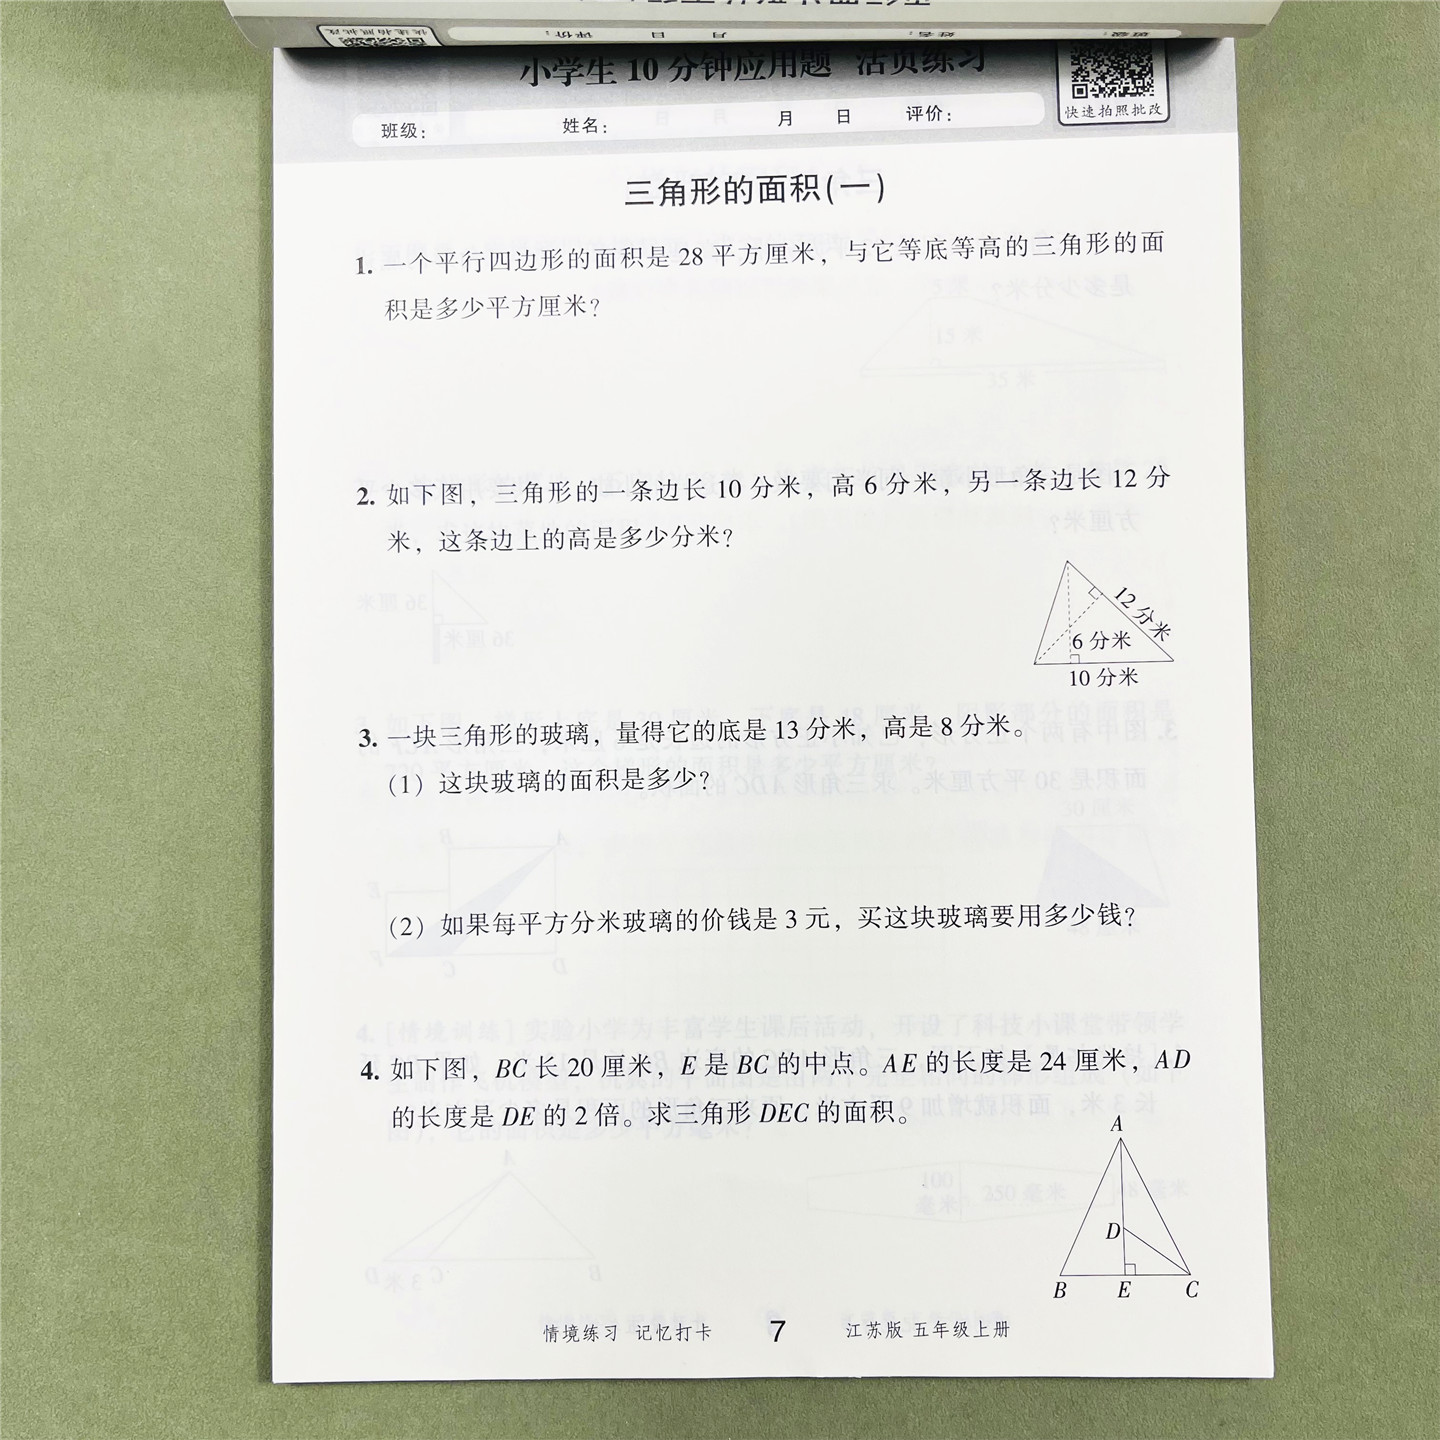 小学生10分钟应用题 活页练习
快速拍照批改
班级: 姓名: 月 日 评价:
三角形的面积(一)
1. 一个平行四边形的面积是 28 平方厘米，与它等底等高的三角形的面
积是多少平方厘米?
2. 如下图，三角形的一条边长 10 分米，高 6 分米，另一条边长 12 分
米，这条边上的高是多少分米?
12 分米
6 分米
10 分米
3. 一块三角形的玻璃，量得它的底是 13 分米，高是 8 分米。
(1) 这块玻璃的面积是多少?
(2) 如果每平方分米玻璃的价钱是 3 元，买这块玻璃要用多少钱?
4. 如下图，BC 长 20 厘米，E 是 BC 的中点。AE 的长度是 24 厘米，AD
的长度是 DE 的 2 倍。求三角形 DEC 的面积。
A
D
B E C
情境练习 记忆打卡 7 江苏版 五年级上册